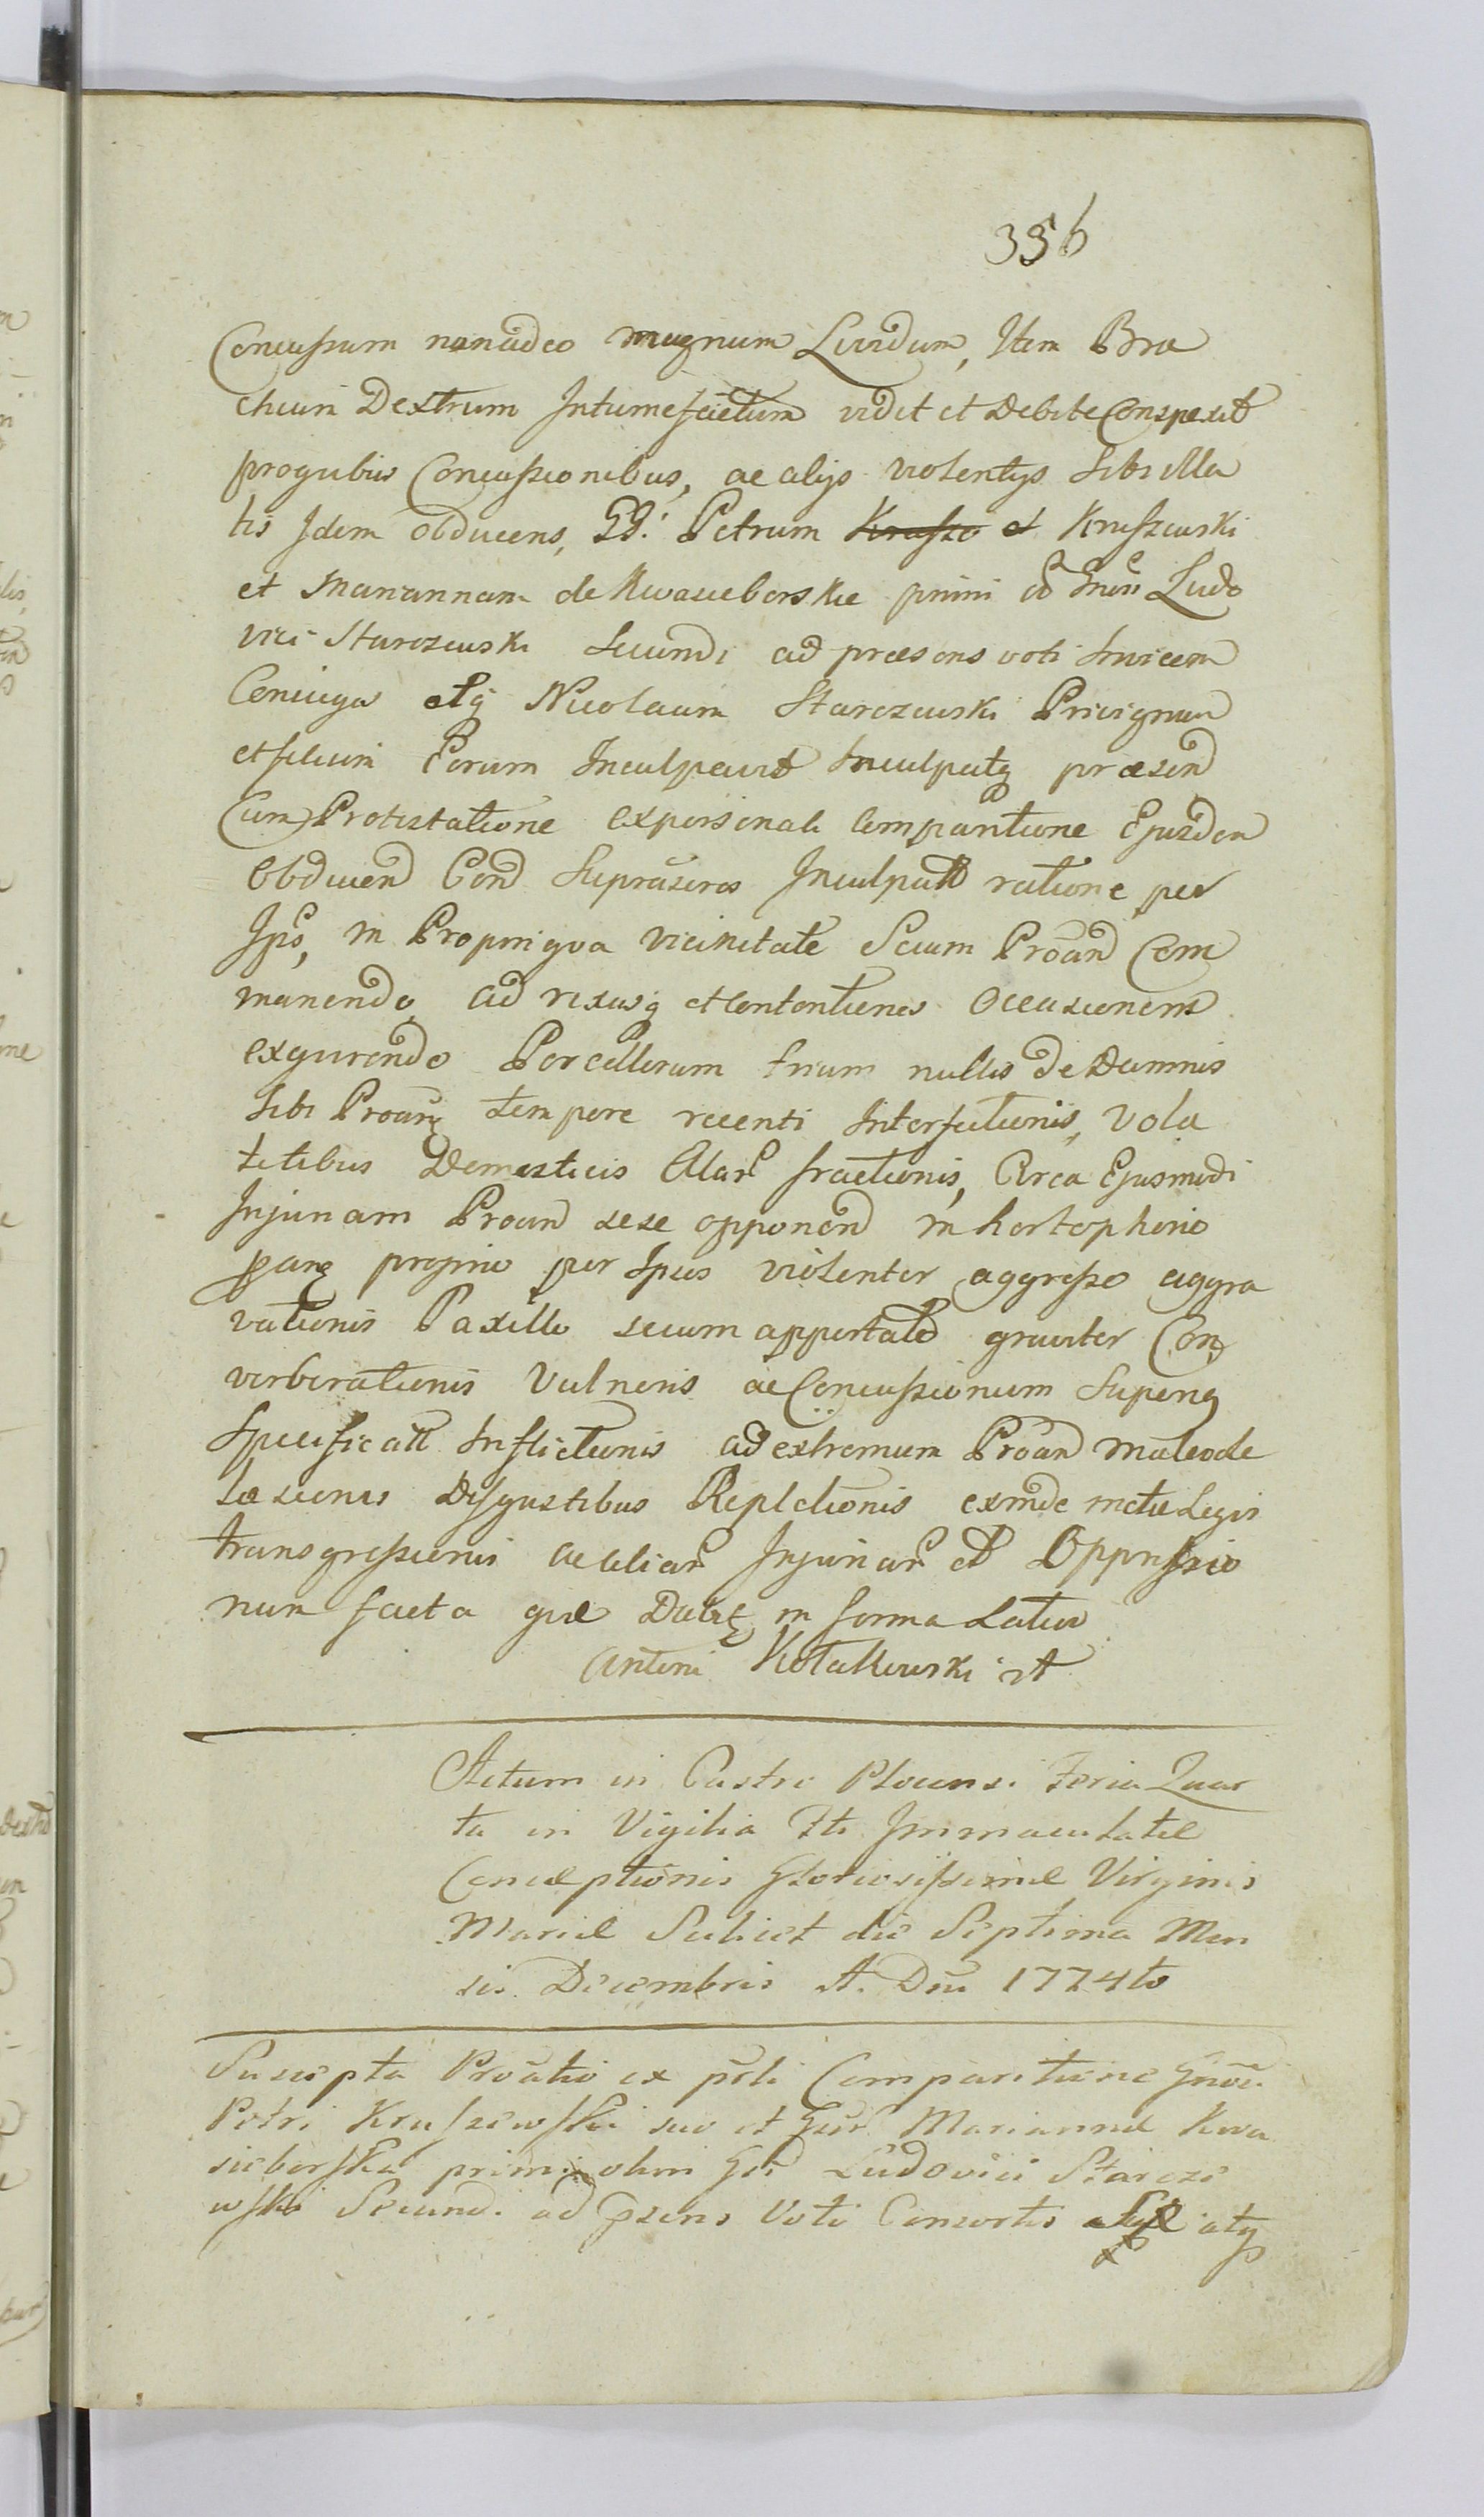 356
Concussum nonadeo magnum Lividum, Item Bra
chium Dextrum Intumefactum vidit et Debite Conspexit
pro quibus Concussionibus, ac alijs violentijs sibi illa
tis Idem obducens, GG: Petrum Kruszo et Kruszewski
et Mariannam de Kwasieborskie primi Ludo
vici Starczewski Secundi ad præsens voti Invicem
Coniuges atq Nicolaum Starczewski Privignum
et filium Eorum Inculpavit Inculpatq præsen
Cum Protestatione expersonali Comparitione Ejusdem
Obducen Con Supraseros Inculpatt ratione per
Ips, in Propinqva vicinitate Secum Proan Com
manendo, ad rixasq et Contentiones Occasionem
exqvirendo Porcellorum trium nullis de Damnis
sibi Proan tempore recenti Interfectionis, Vola
tilibus Domesticis Alar fractionis, Circa Ejusmodi
Injuriam Proan sese opponen in hortophorio
proprio per Ipsos violenter aggresso aggra
vationis Paxillo secum apportato graviter Con
verberationis Vulneris ac Concussionum Superiq
Specificatt Inflictionis ad extremum Proan
læsionis Disgustibus Repletionis exinde metæ Legis
transgressionis ac aliar Injuriar et Oppressio
num facta qvæ Dabit in forma Latior
Antoni Kołakowski
Actum in Castro Plocensi Feria Quar
ta in Vigilia Fti Immaculatæ
Conceptionis Gloriosissimæ Virginis
Mariæ Scilicet die Septima Men
sis Decembris A. Dni 1774to
Suscepta Proatio ex psli Comparitione Gnosi
Petri Kruszewski suo et Mariannæ Kwa
sieborska primi olim Ludovici Starcze
wski Secundi ad psens Voti Consortis atq